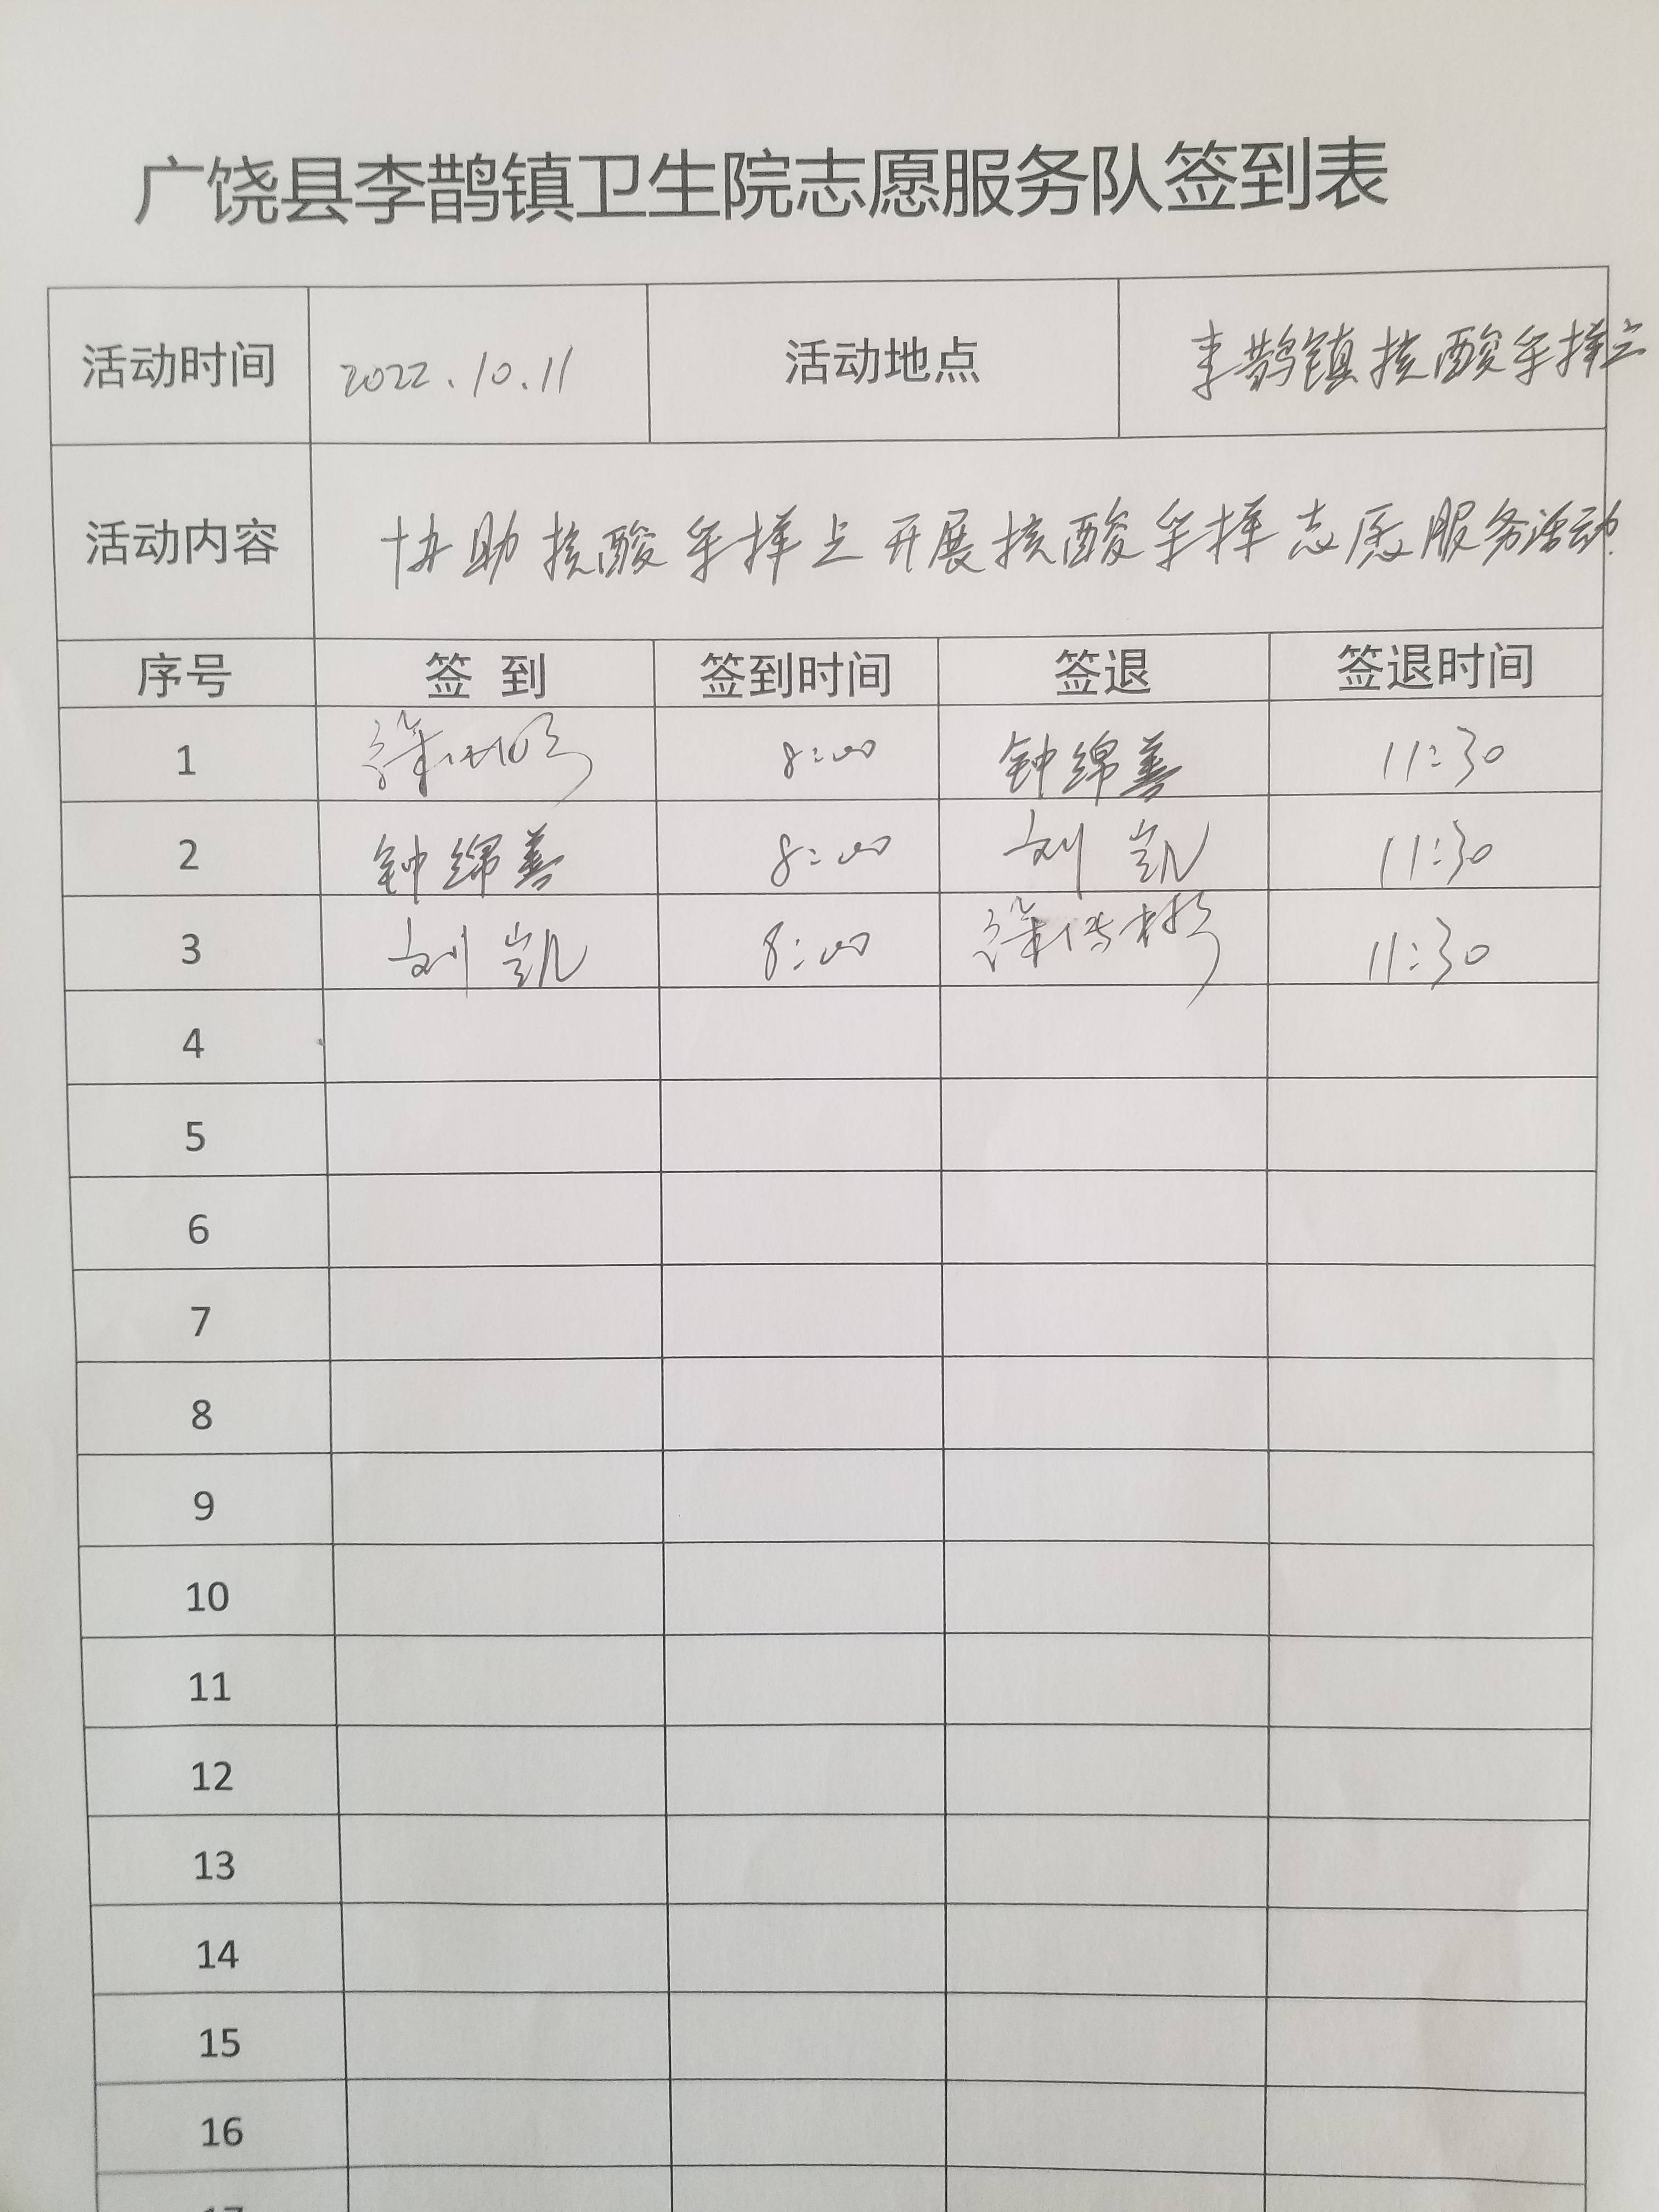 广饶县李鹊镇卫生院志愿服务队签到表
活动时间 2022.10.11 活动地点 李鹊镇核酸采样点
活动内容 协助核酸采样点开展核酸采样志愿服务活动.
序号 签 到 签到时间 签退 签退时间
1 8:00 钟绵善 11:30
2 钟绵善 8:00 刘凯 11:30
3 刘凯 8:00 11:30
4
5
6
7
8
9
10
11
12
13
14
15
16
17